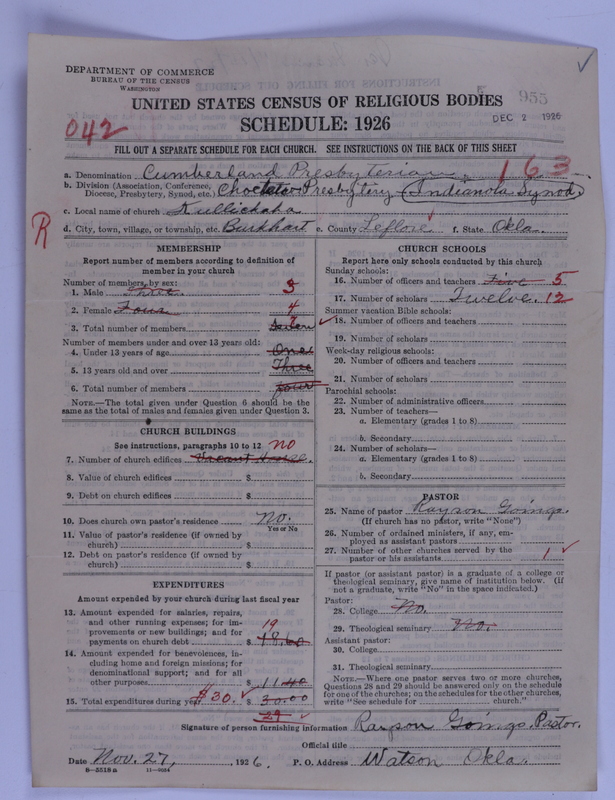 DEPARTMENT OF COMMERCE
BUREAU OF THE CENSUS
WASHINGTON
955
UNITED STATES CENSUS OF RELIGIOUS BODIES
DEC 2 1926
SCHEDULE: 1926
042
FILL OUT A SEPARATE SCHEDULE FOR EACH CHURCH. SEE INSTRUCTIONS ON THE BACK OF THIS SHEET
163
a. Denomination Cumberland Presbyterian
b. Division (Association, Conference, Diocese, Presbytery, Synod, etc.) Choctaw Presbytery (Indianola Synod)
c. Local name of church Kullichaha
d. City, town, village, or township, etc. Burkhart e. County Leflore f. State Okla.
R
MEMBERSHIP
Report number of members according to definition of
member in your church
Number of members, by sex:
1. Male Three 3
2. Female Four 4
3. Total number of members Seven 7
Number of members under and over 13 years old:
4. Under 13 years of age One
5. 13 years old and over Three
6. Total number of members four
NOTE.—The total given under Question 6 should be the
same as the total of males and females given under Question 3.
CHURCH BUILDINGS
See instructions, paragraphs 10 to 12 no
7. Number of church edifices Vacant House.
8. Value of church edifices $
9. Debt on church edifices $
10. Does church own pastor's residence No.
Yes or No
11. Value of pastor's residence (if owned by
church) $
12. Debt on pastor's residence (if owned by
church) $
EXPENDITURES
Amount expended by your church during last fiscal year
13. Amount expended for salaries, repairs,
and other running expenses; for im-
provements or new buildings; and for
payments on church debt $ 18.60 19
14. Amount expended for benevolences, in-
cluding home and foreign missions; for
denominational support; and for all
other purposes $ 11.40
15. Total expenditures during year $30. $ 30.00
29
CHURCH SCHOOLS
Report here only schools conducted by this church
Sunday schools:
16. Number of officers and teachers Five 5
17. Number of scholars Twelve. 12
Summer vacation Bible schools:
18. Number of officers and teachers
19. Number of scholars
Week-day religious schools:
20. Number of officers and teachers
21. Number of scholars
Parochial schools:
22. Number of administrative officers
23. Number of teachers—
a. Elementary (grades 1 to 8)
b. Secondary
24. Number of scholars—
a. Elementary (grades 1 to 8)
b. Secondary
PASTOR
25. Name of pastor Rayson Goings.
(If church has no pastor, write "None")
26. Number of ordained ministers, if any, em-
ployed as assistant pastors
27. Number of other churches served by the
pastor or his assistants 1
If pastor (or assistant pastor) is a graduate of a college or
theological seminary, give name of institution below. (If
not a graduate, write "No" in the space indicated.)
Pastor:
28. College No.
29. Theological seminary No.
Assistant pastor:
30. College
31. Theological seminary
NOTE.—Where one pastor serves two or more churches,
Questions 28 and 29 should be answered only on the schedule
for one of the churches; on the schedules for the other churches,
write "See schedule for church."
Signature of person furnishing information Rayson Goings. Pastor.
Official title
Date Nov. 27, 1926. P. O. Address Watson Okla.
8-5518a 11-9024